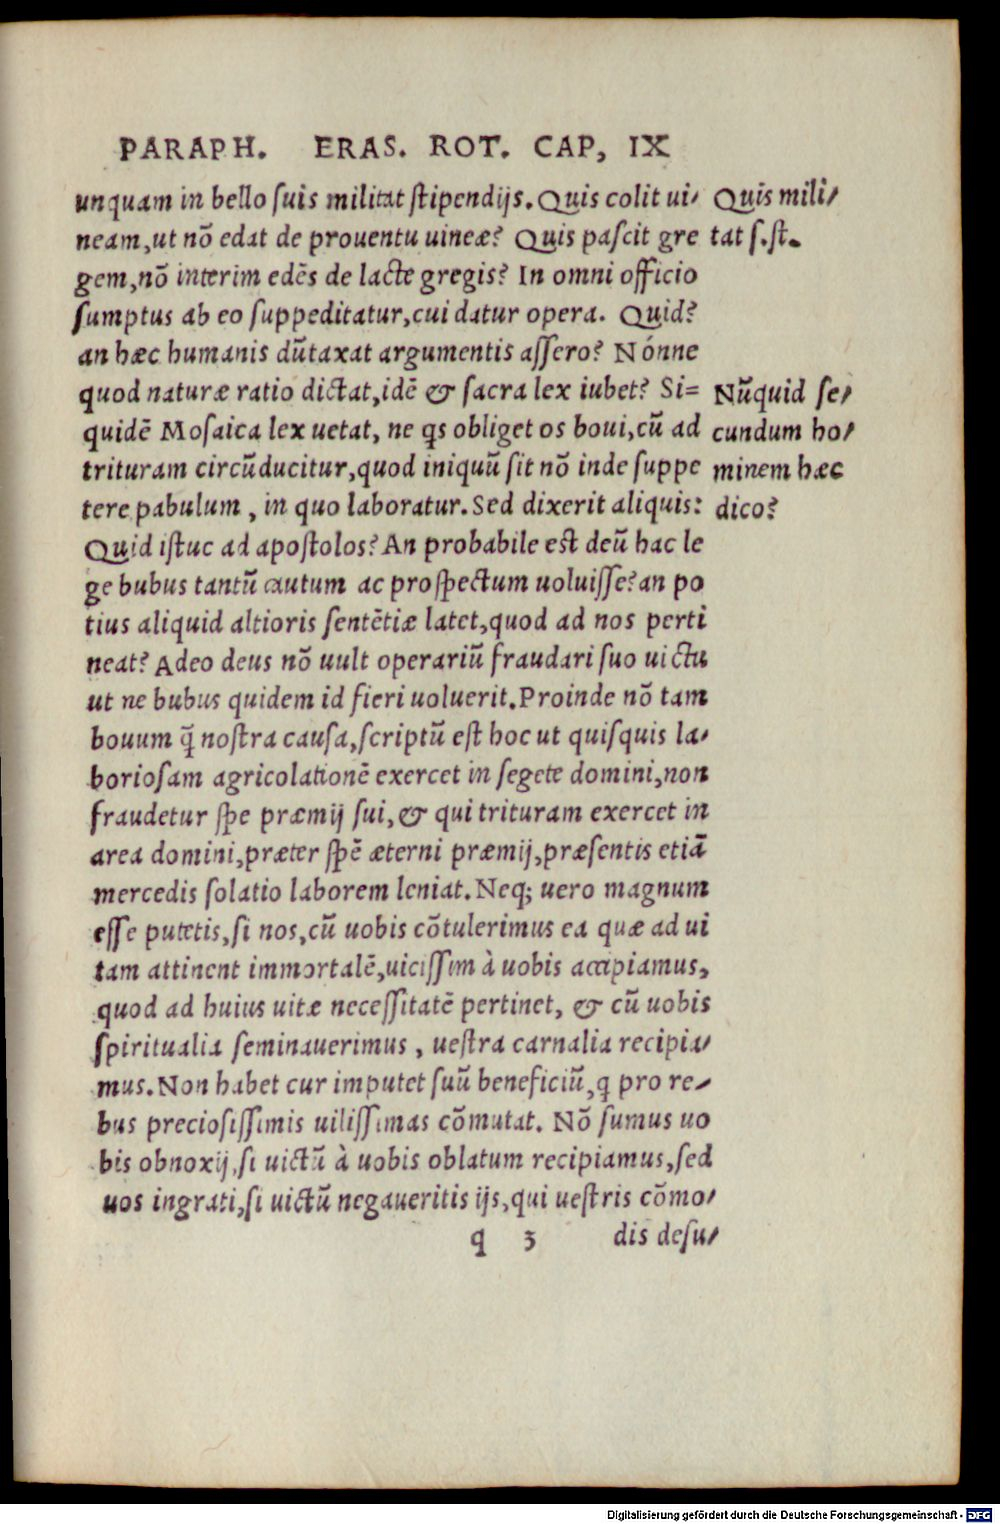 PARAPH. ERAS. ROT. CAP, IX
unquam in bello ſuis militat ſtipendijs. Quis colit ui-
neam, ut nō edat de prouentu uineæ? Quis paſcit gre
gem, nō interim edēs de lacte gregis? In omni officio
ſumptus ab eo ſuppeditatur, cui datur opera. Quid?
an hæc humanis dūtaxat argumentis aſſero? Nónne
quod naturæ ratio dictat, idē & ſacra lex iubet? Si=
quidē Moſaica lex uetat, ne qs obliget os boui, cū ad
trituram circūducitur, quod iniquū ſit nō inde ſuppe
tere pabulum, in quo laboratur. Sed dixerit aliquis:
Quid iſtuc ad apoſtolos? An probabile eſt deū hac le
ge bubus tantū cautum ac proſpectum uoluiſſe? an po
tius aliquid altioris ſentētiæ latet, quod ad nos perti
neat? Adeo deus nō uult operariū fraudari ſuo uictu
ut ne bubus quidem id fieri uoluerit. Proinde nō tam
bouum q̄ noſtra cauſa, ſcriptū eſt hoc ut quiſquis la-
borioſam agricolationē exercet in ſegete domini, non
fraudetur ſpe præmij ſui, & qui trituram exercet in
area domini, præter ſpē æterni præmij, præſentis etiā
mercedis ſolatio laborem leniat. Neq; uero magnum
eſſe putetis, ſi nos, cū uobis cōtulerimus ea quæ ad ui
tam attinent immortalē, uiciſſim à uobis accipiamus,
quod ad huius uitæ neceſſitatē pertinet, & cū uobis
ſpiritualia ſeminauerimus, ueſtra carnalia recipia-
mus. Non habet cur imputet ſuū beneficiū, q pro re-
bus precioſiſſimis uiliſſimas cōmutat. Nō ſumus uo
bis obnoxij, ſi uictū à uobis oblatum recipiamus, ſed
uos ingrati, ſi uictū negaueritis ijs, qui ueſtris cōmo-
q 3 dis deſu-
Quis mili-
tat ſ. ſt.
Nūquid ſe-
cundum ho-
minem hæc
dico?
Digitalisierung gefördert durch die Deutsche Forschungsgemeinschaft - DFG